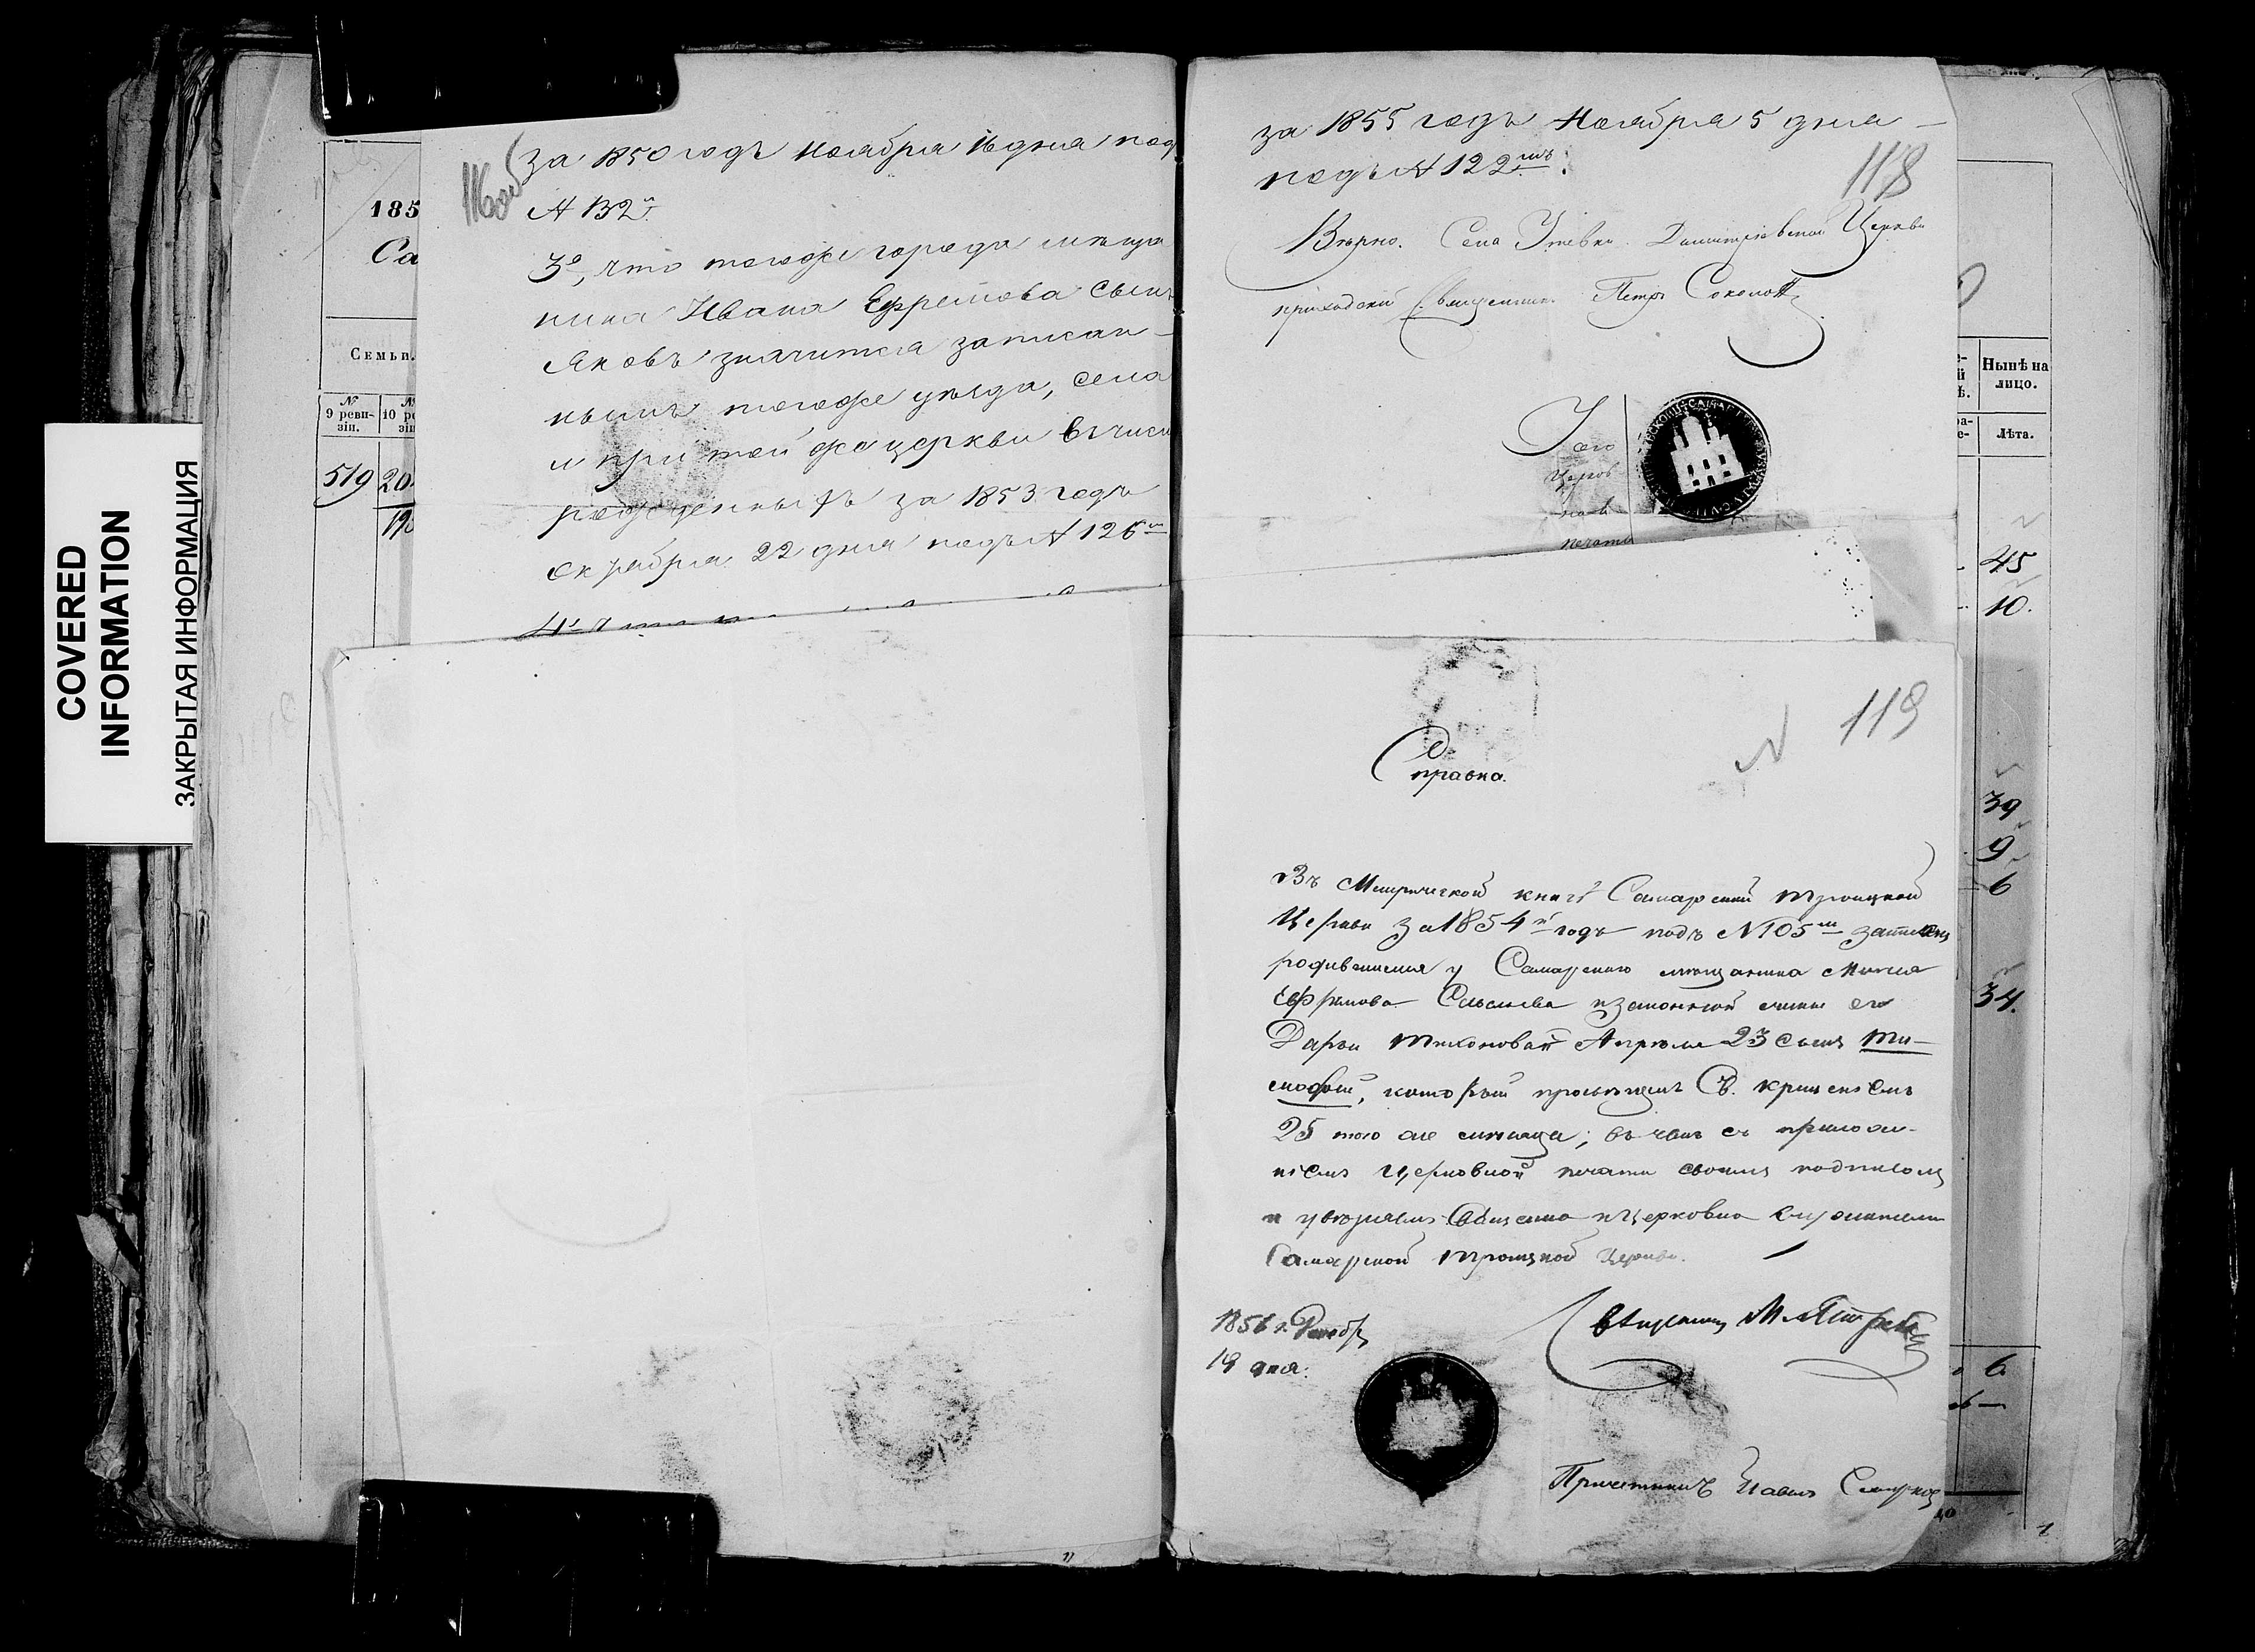 COVERED
INFORMATION
ЗАКРЫТАЯ ИНФОРМАЦИЯ
185
Са
Семьи.
№
9 реви-
зіи.
10 ре
зіи
519
20
116 об
за 1850 годъ Ноября 16 дня под
№ 132
3е, что тогоже города мѣща
нина Ивана Ефремова сынъ
Яковъ значится записан-
нымъ тогоже уѣзда, села
и при той же церкви въ числ
рожденныхъ за 1853 годъ
октября 22 дня подъ № 126
за 1855 годъ Ноября 5 дня –
подъ № 122мъ.
118
Вѣрно. Села Утевки Димитріевской Церкви
приходскій Священникъ Петръ Соколовъ
У сего
церков
ная
печать
Нынѣ на
лицо.
Лѣта.
45
10.
39
9
6
34.
6
119
Справка.
Въ Метрической книгѣ Самарской Троицкой
Церкви за 1854й годъ подъ №105м записанъ
родившимся у Самарскаго мѣщанина
Ефремова и законной жены его
Дарьи Тихоновой Апрѣля 23 сынъ Ти-
мофей, который просвѣщенъ Св. крещеніемъ
25 того же мѣсяца; въ чемъ съ приложе-
ніемъ церковной печати своимъ подписомъ
и увѣряемъ Священно и Церковно служители
Самарской Троицкой Церкви.
19 дня.
Священникъ
Причетникъ Павелъ Смирнов